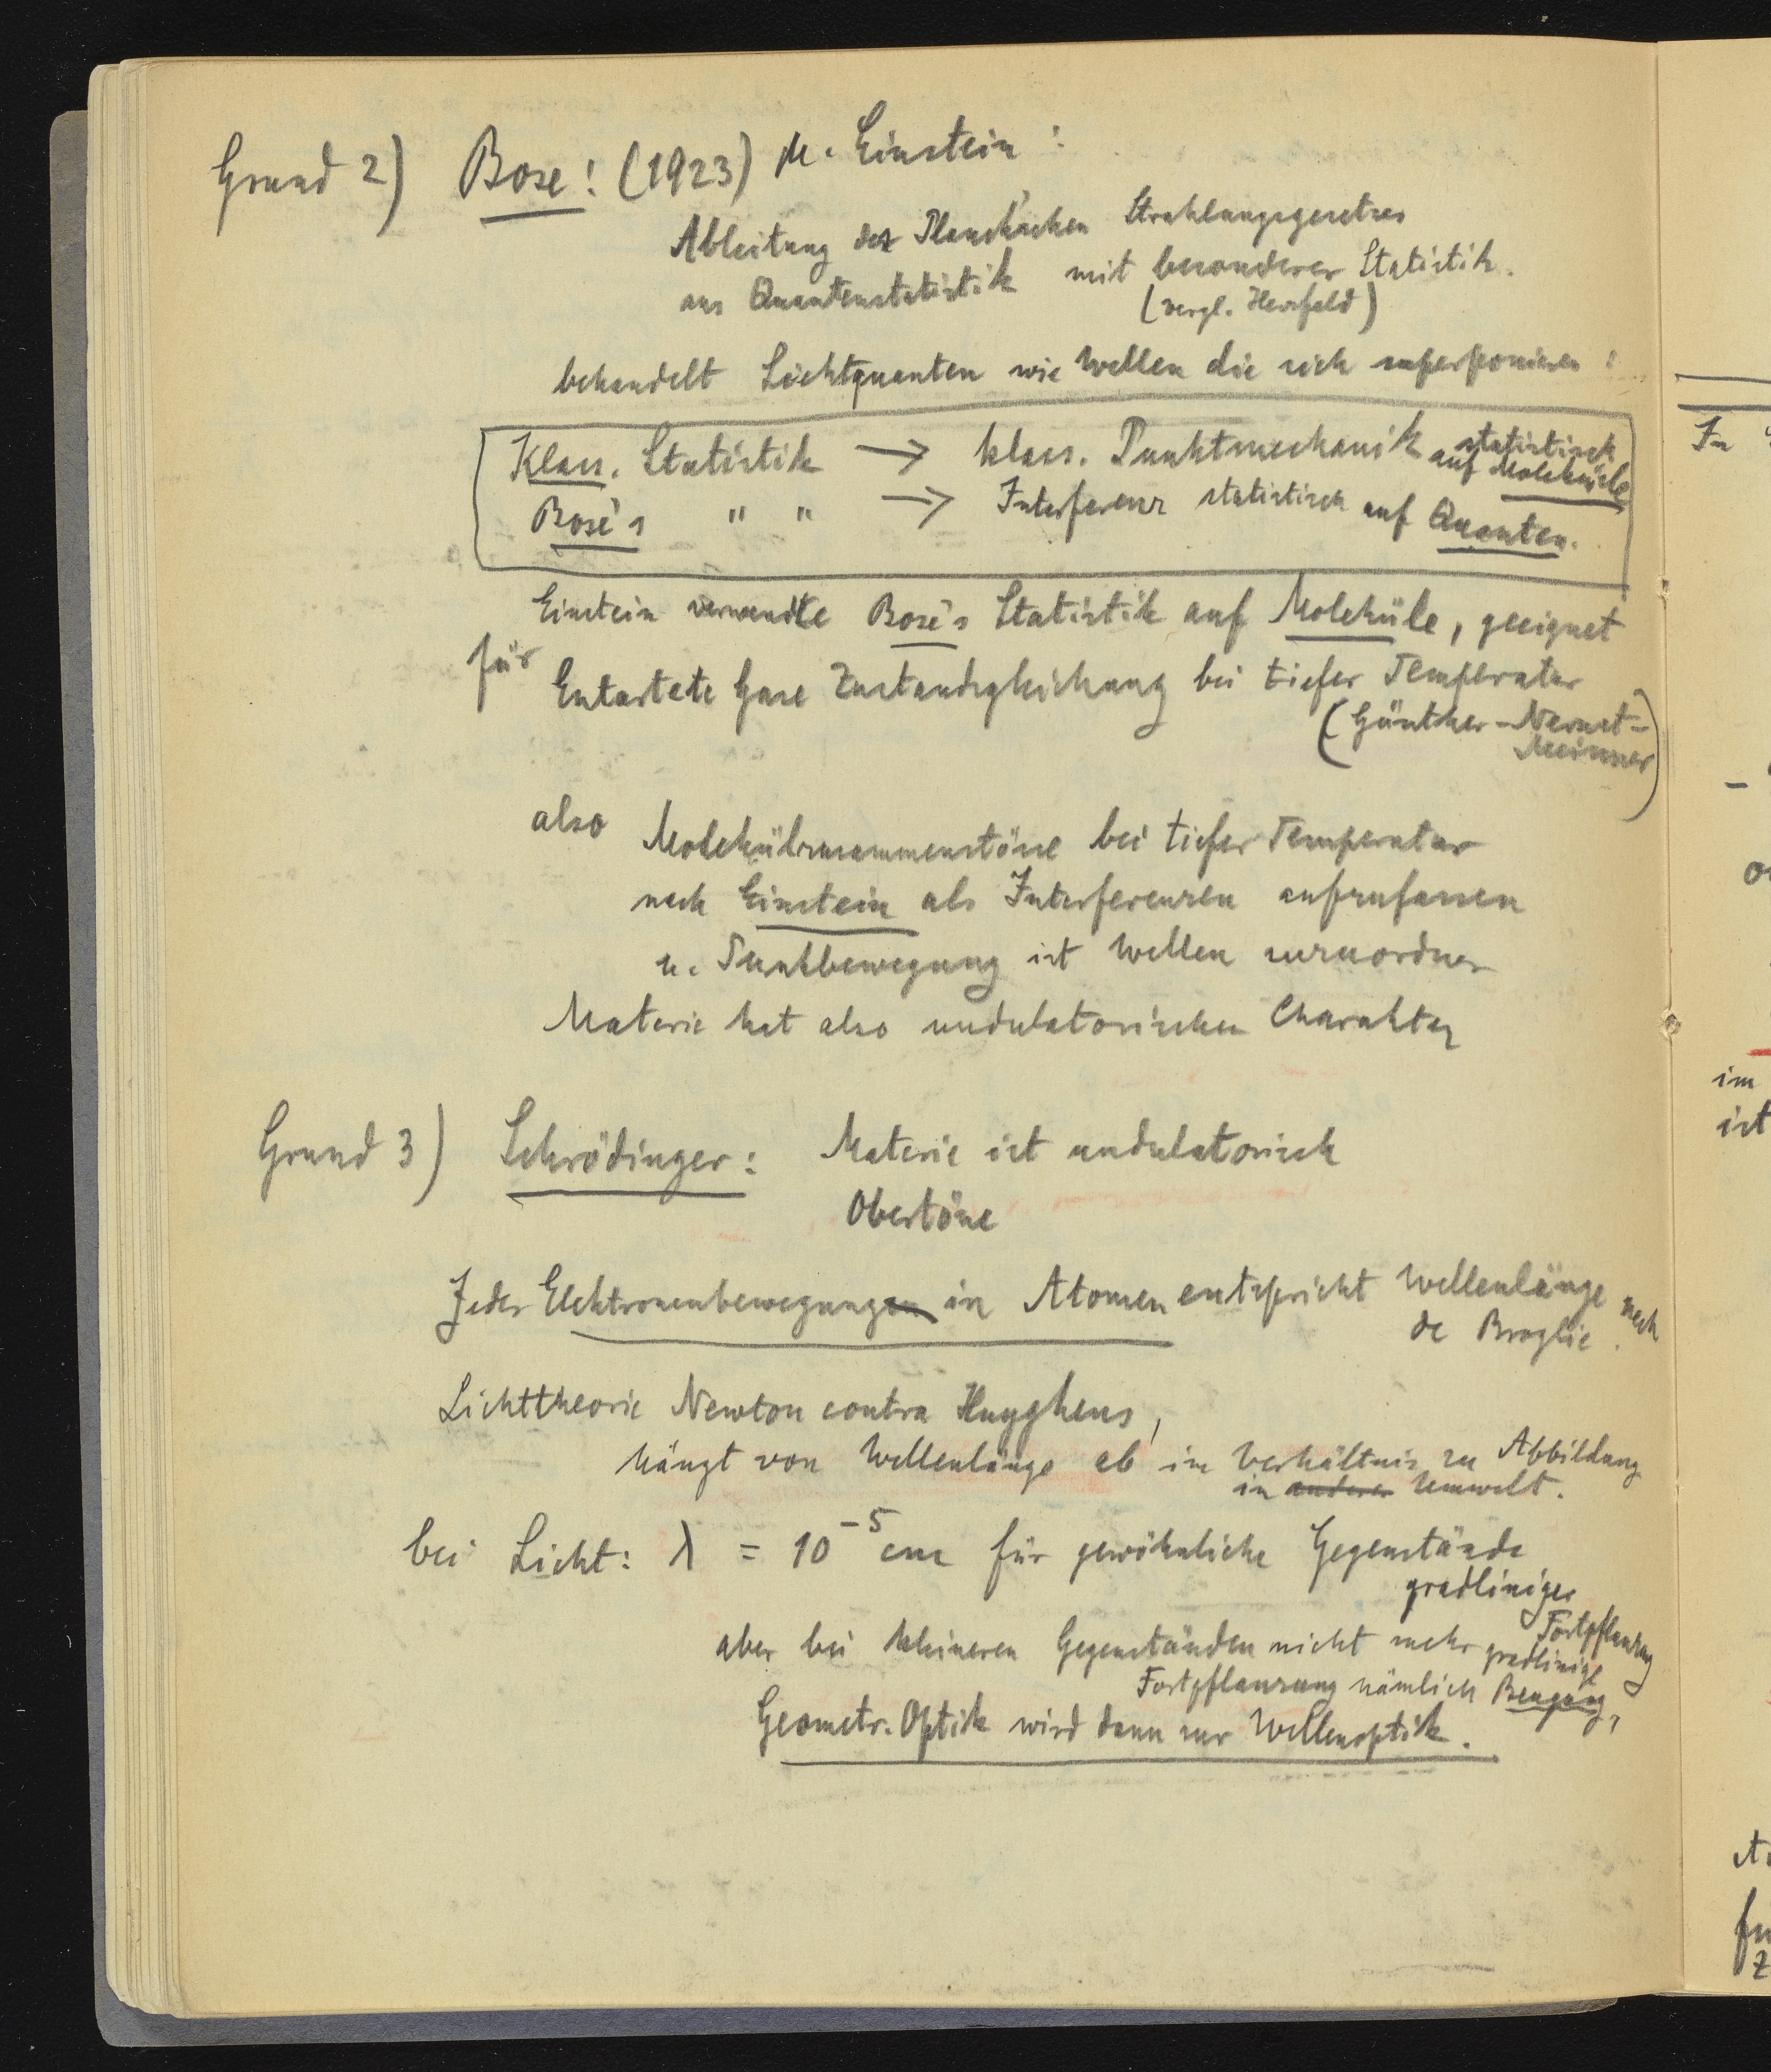 Grund 2) Bose! (1923) u. Einstein :
Ableitung des Planck'schen Strahlungsgesetzes
aus Quantenstatistik mit besonderer Statistik.
(vergl. Herzfeld)
behandelt Lichtquanten wie Wellen die sich superponieren :
Klass. Statistik → klass. Punktmechanik statistisch
auf Moleküle
Bose's " " → Interferenz statistisch auf Quanten.
Einstein verwandte Bose's Statistik auf Moleküle, geeignet
für Entartete Gase Zustandsgleichung bei tiefer Temperatur
(Günther-Nernst-
Meissner)
also Molekülzusammenstösse bei tiefer Temperatur
nach Einstein als Interferenzen aufzufassen
u. Punktbewegung ist Wellen zuzuordnen
Materie hat also undulatorischen Charakter
Grund 3) Schrödinger: Materie ist undulatorisch
Obertöne
Jeder Elektronenbewegungen in Atomen entspricht Wellenlänge nach
de Broglie.
Lichttheorie Newton contra Huyghens,
hängt von Wellenlänge ab im Verhältnis zu Abbildung
in anderer Umwelt.
bei Licht: λ = 10⁻⁵ cm für gewöhnliche Gegenstände
gradliniges
Fortpflanzung
aber bei kleineren Gegenständen nicht mehr gradlinige
Fortpflanzung nämlich Beugung,
Geometr. Optik wird dann zur Wellenoptik.
In
im
ist